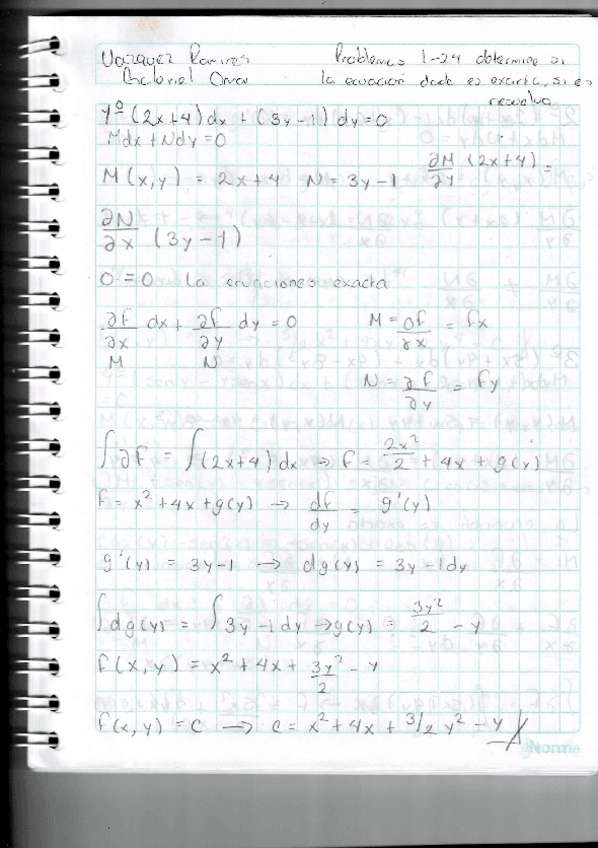 Vazquez Ramirez Problemas 1-24 determine si
Gabriel Omar la ecuacion dada es exacta, si es
resuelva
1º (2x+4)dx + (3y-1)dy=0
Mdx+Ndy=0
M(x,y) = 2x+4 N=3y-1 ∂M/∂y (2x+4) =
∂N/∂x (3y-1)
0=0 la ecuaciones exacta
∂f/∂x dx+ ∂f/∂y dy =0 M= ∂f/∂x = fx
M N
N= ∂f/∂y = fy
∫∂f = ∫(2x+4)dx → f= 2x²/2 + 4x + g(y)
f= x²+4x+g(y) → df/dy = g'(y)
g'(y) = 3y-1 → dg(y) = 3y-1dy
∫dg(y) = ∫3y-1dy → g(y) = 3y²/2 - y
f(x,y) = x²+4x+ 3y²/2 - y
f(x,y) = c → c= x²+4x + 3/2 y² - y
Norma